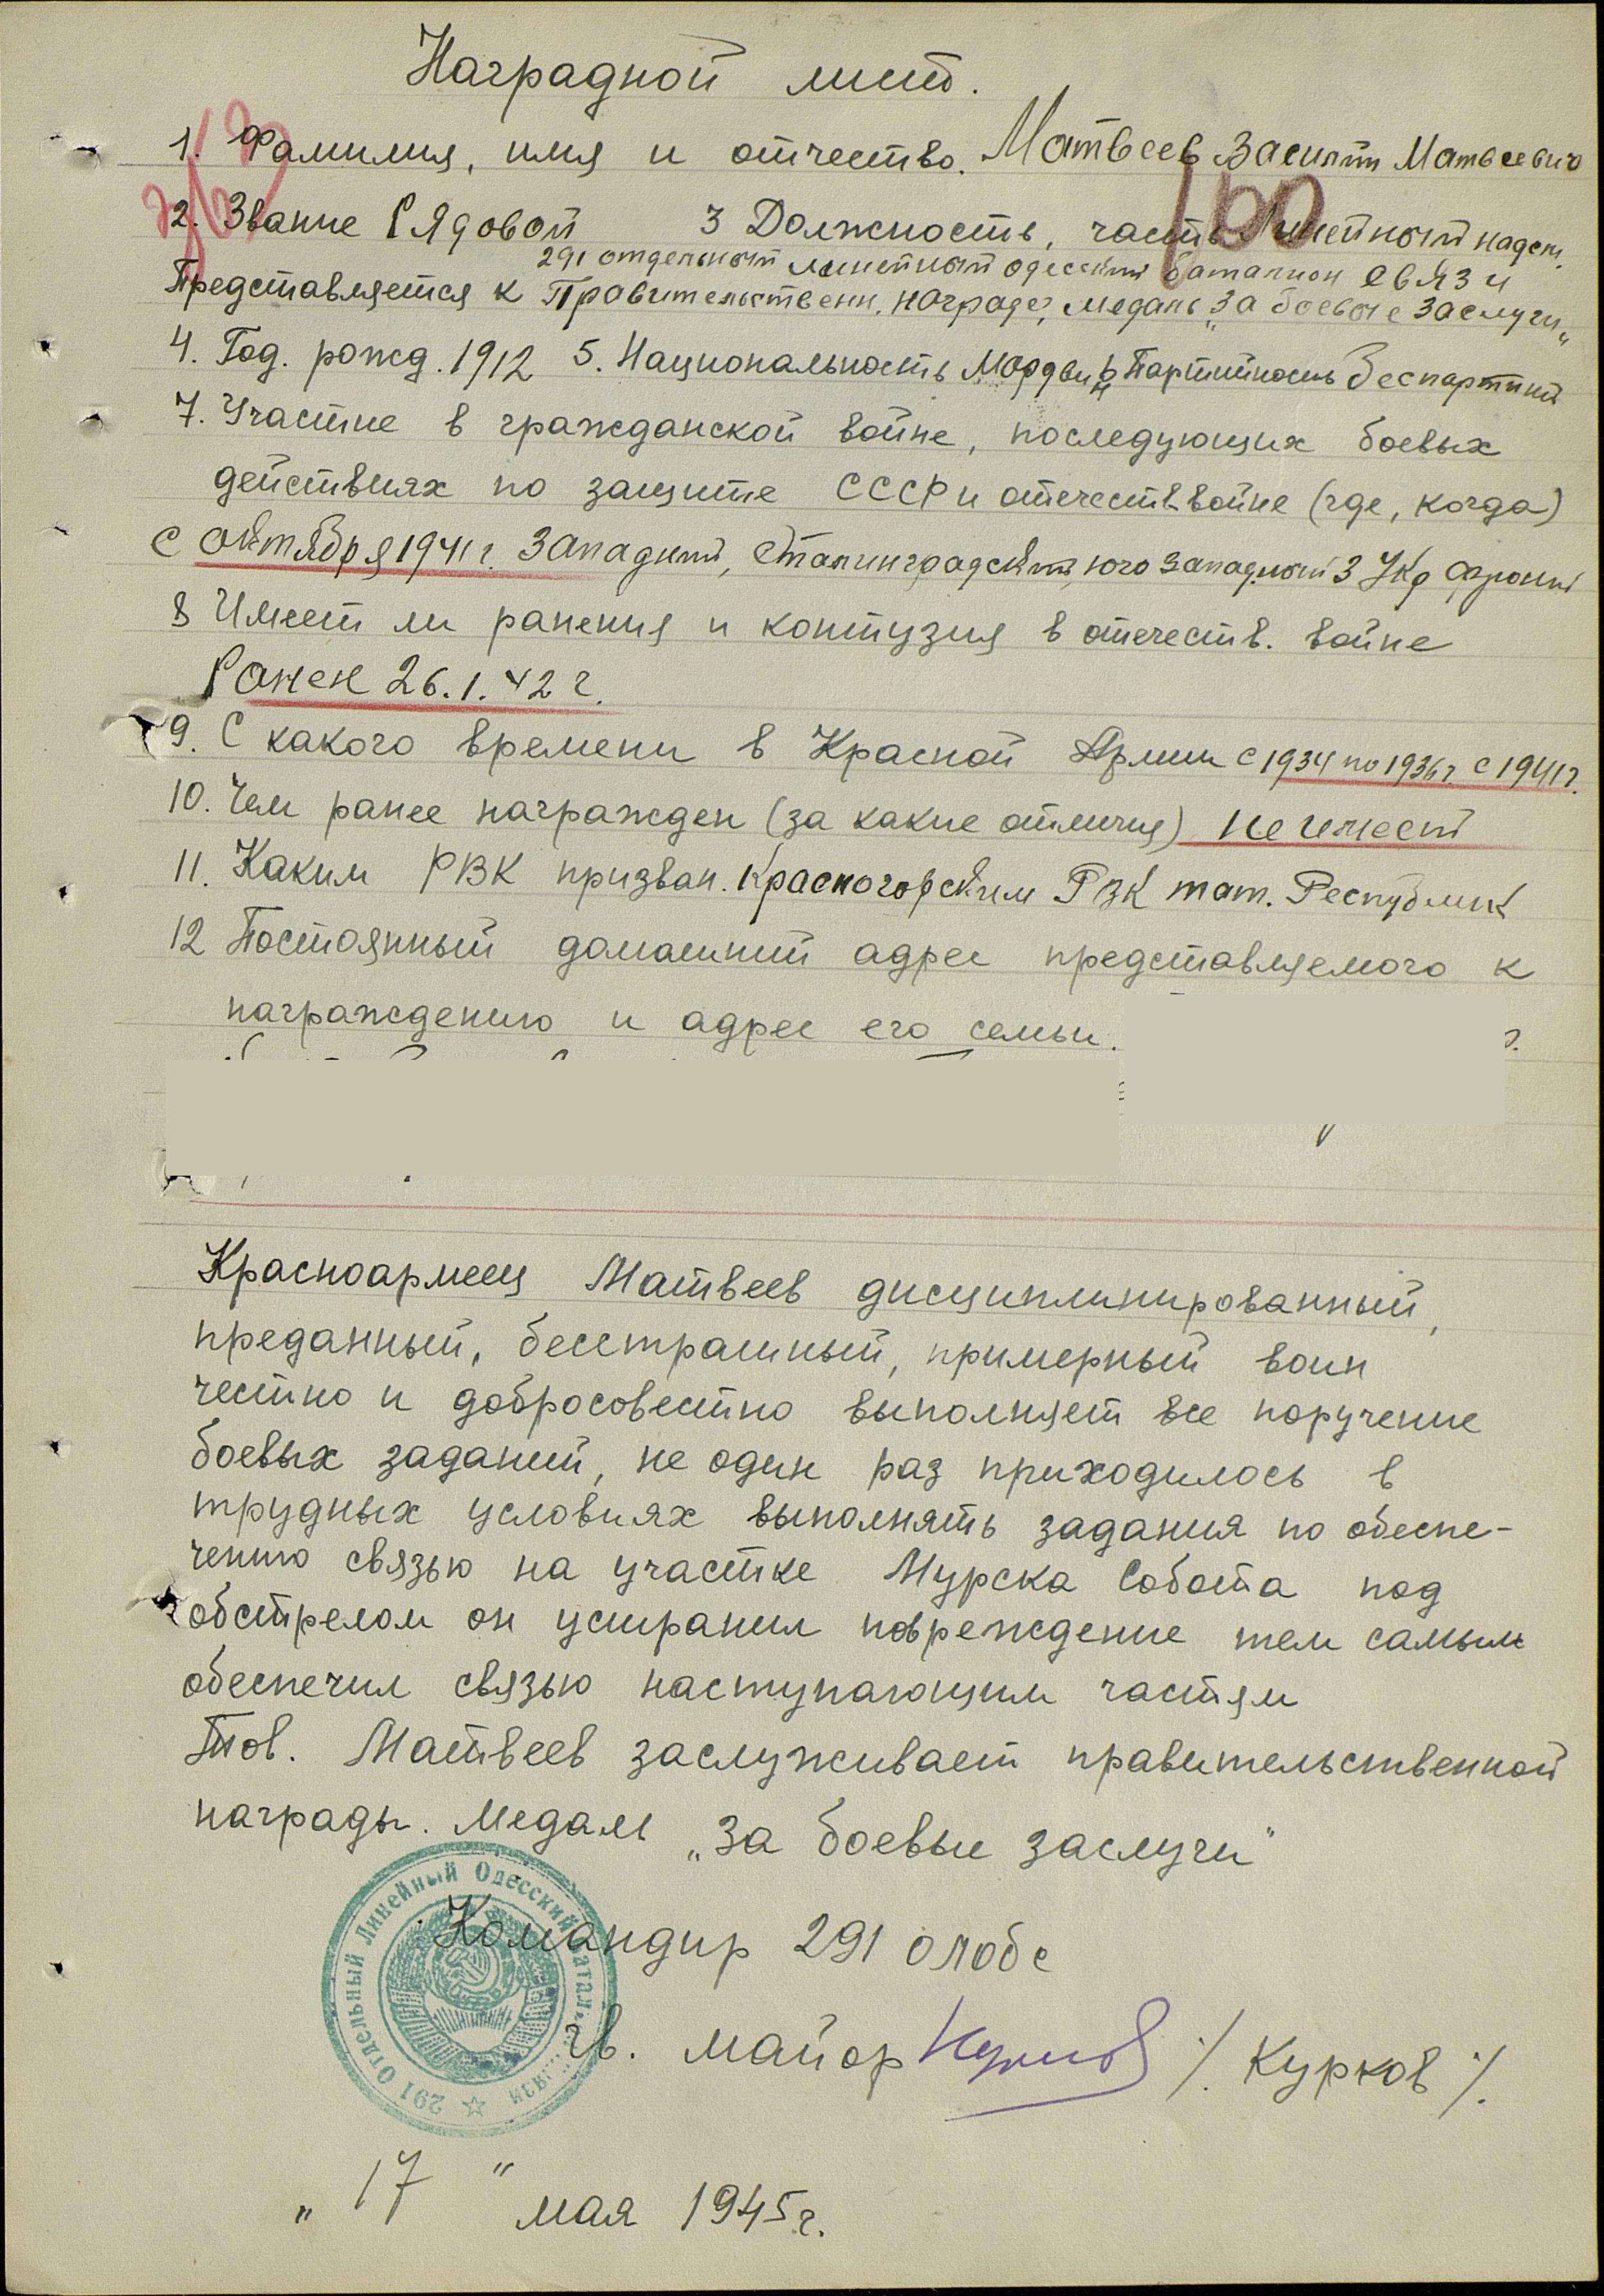 Наградной лист.
1. Фамилия, имя и отчество. Матвеев Василий Матвеевич
2. Звание Рядовой 3 Должность, часть Линейный надсм.
291 отдельный линейный одесский баталион связи
Представляется к Правительственн. награде, медаль „За боевые заслуги“
4. Год. рожд. 1912 5. Национальность Мордвин 6 Партийность Беспартийн
7. Участие в гражданской войне, последующих боевых
действиях по защите СССР и отечеств войне (где, когда)
с октября 1941 г. Западный, Сталинградский, юго западный 3 Укр фронт
8 Имеет ли ранения и контузия в отечеств. войне
Ранен 26.1.42 г.
9. С какого времени в Красной Армии с 1934 по 1936 г с 1941 г.
10. Чем ранее награжден (за какие отличия) не имеет
11. Каким РВК призван. Красногорским РВК тат. Республик
12 Постоянный домашний адрес представляемого к
награждению и адрес его семьи.
Красноармеец Матвеев дисциплинированный,
преданный, бесстрашный, примерный воин
честно и добросовестно выполняет все поручение
боевых заданий, не один раз приходилось в
трудных условиях выполнять задания по обеспе-
чению связью на участке Мурска Собота под
обстрелом он устранил повреждение тем самым
обеспечил связью наступающим частям
Тов. Матвеев заслуживает правительственной
награды. Медаль „За боевые заслуги“
Командир 291 олобс
гв. майор /. Курков /.
291 Отдельный Линейный Одесский Баталион Связи
„17“ мая 1945 г.
160